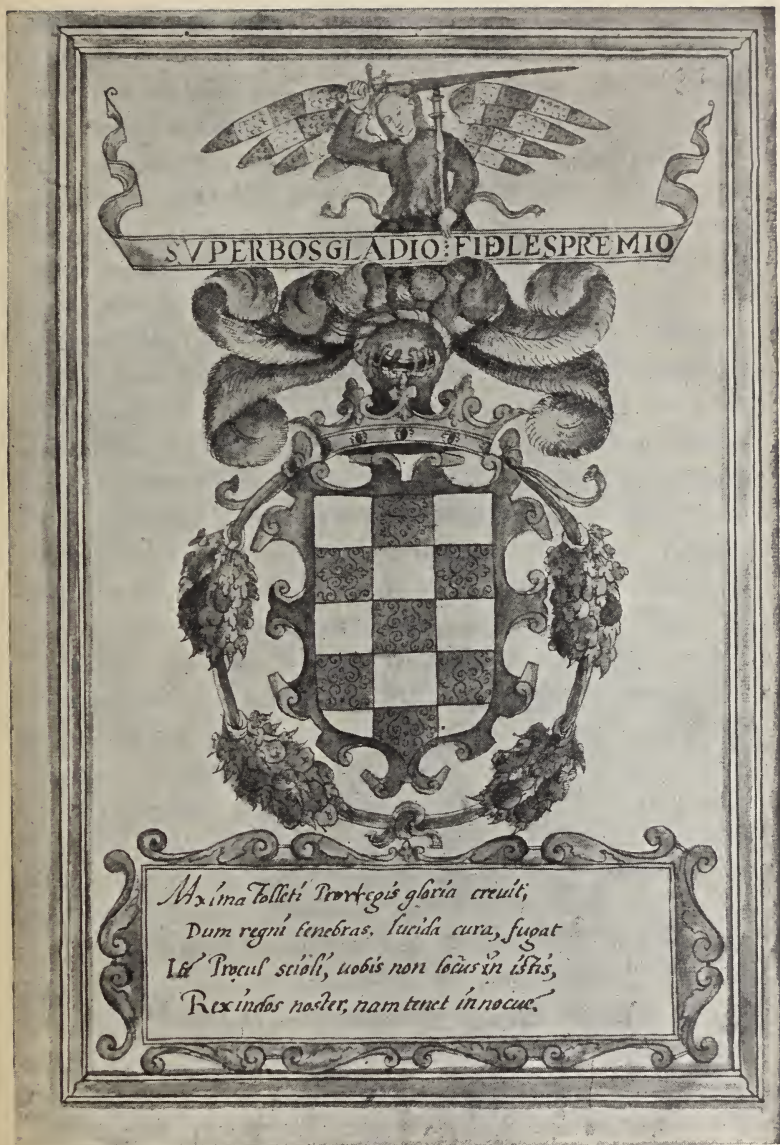 SVPERBOS GLADIO: FIDLES PREMIO
Maxima Tolleti Proregis gloria creuit,
Dum regni tenebras, lucida cura, fugat
Ite Procul scioli, uobis non locus in istis,
Rex indos noster, nam tenet innocue.